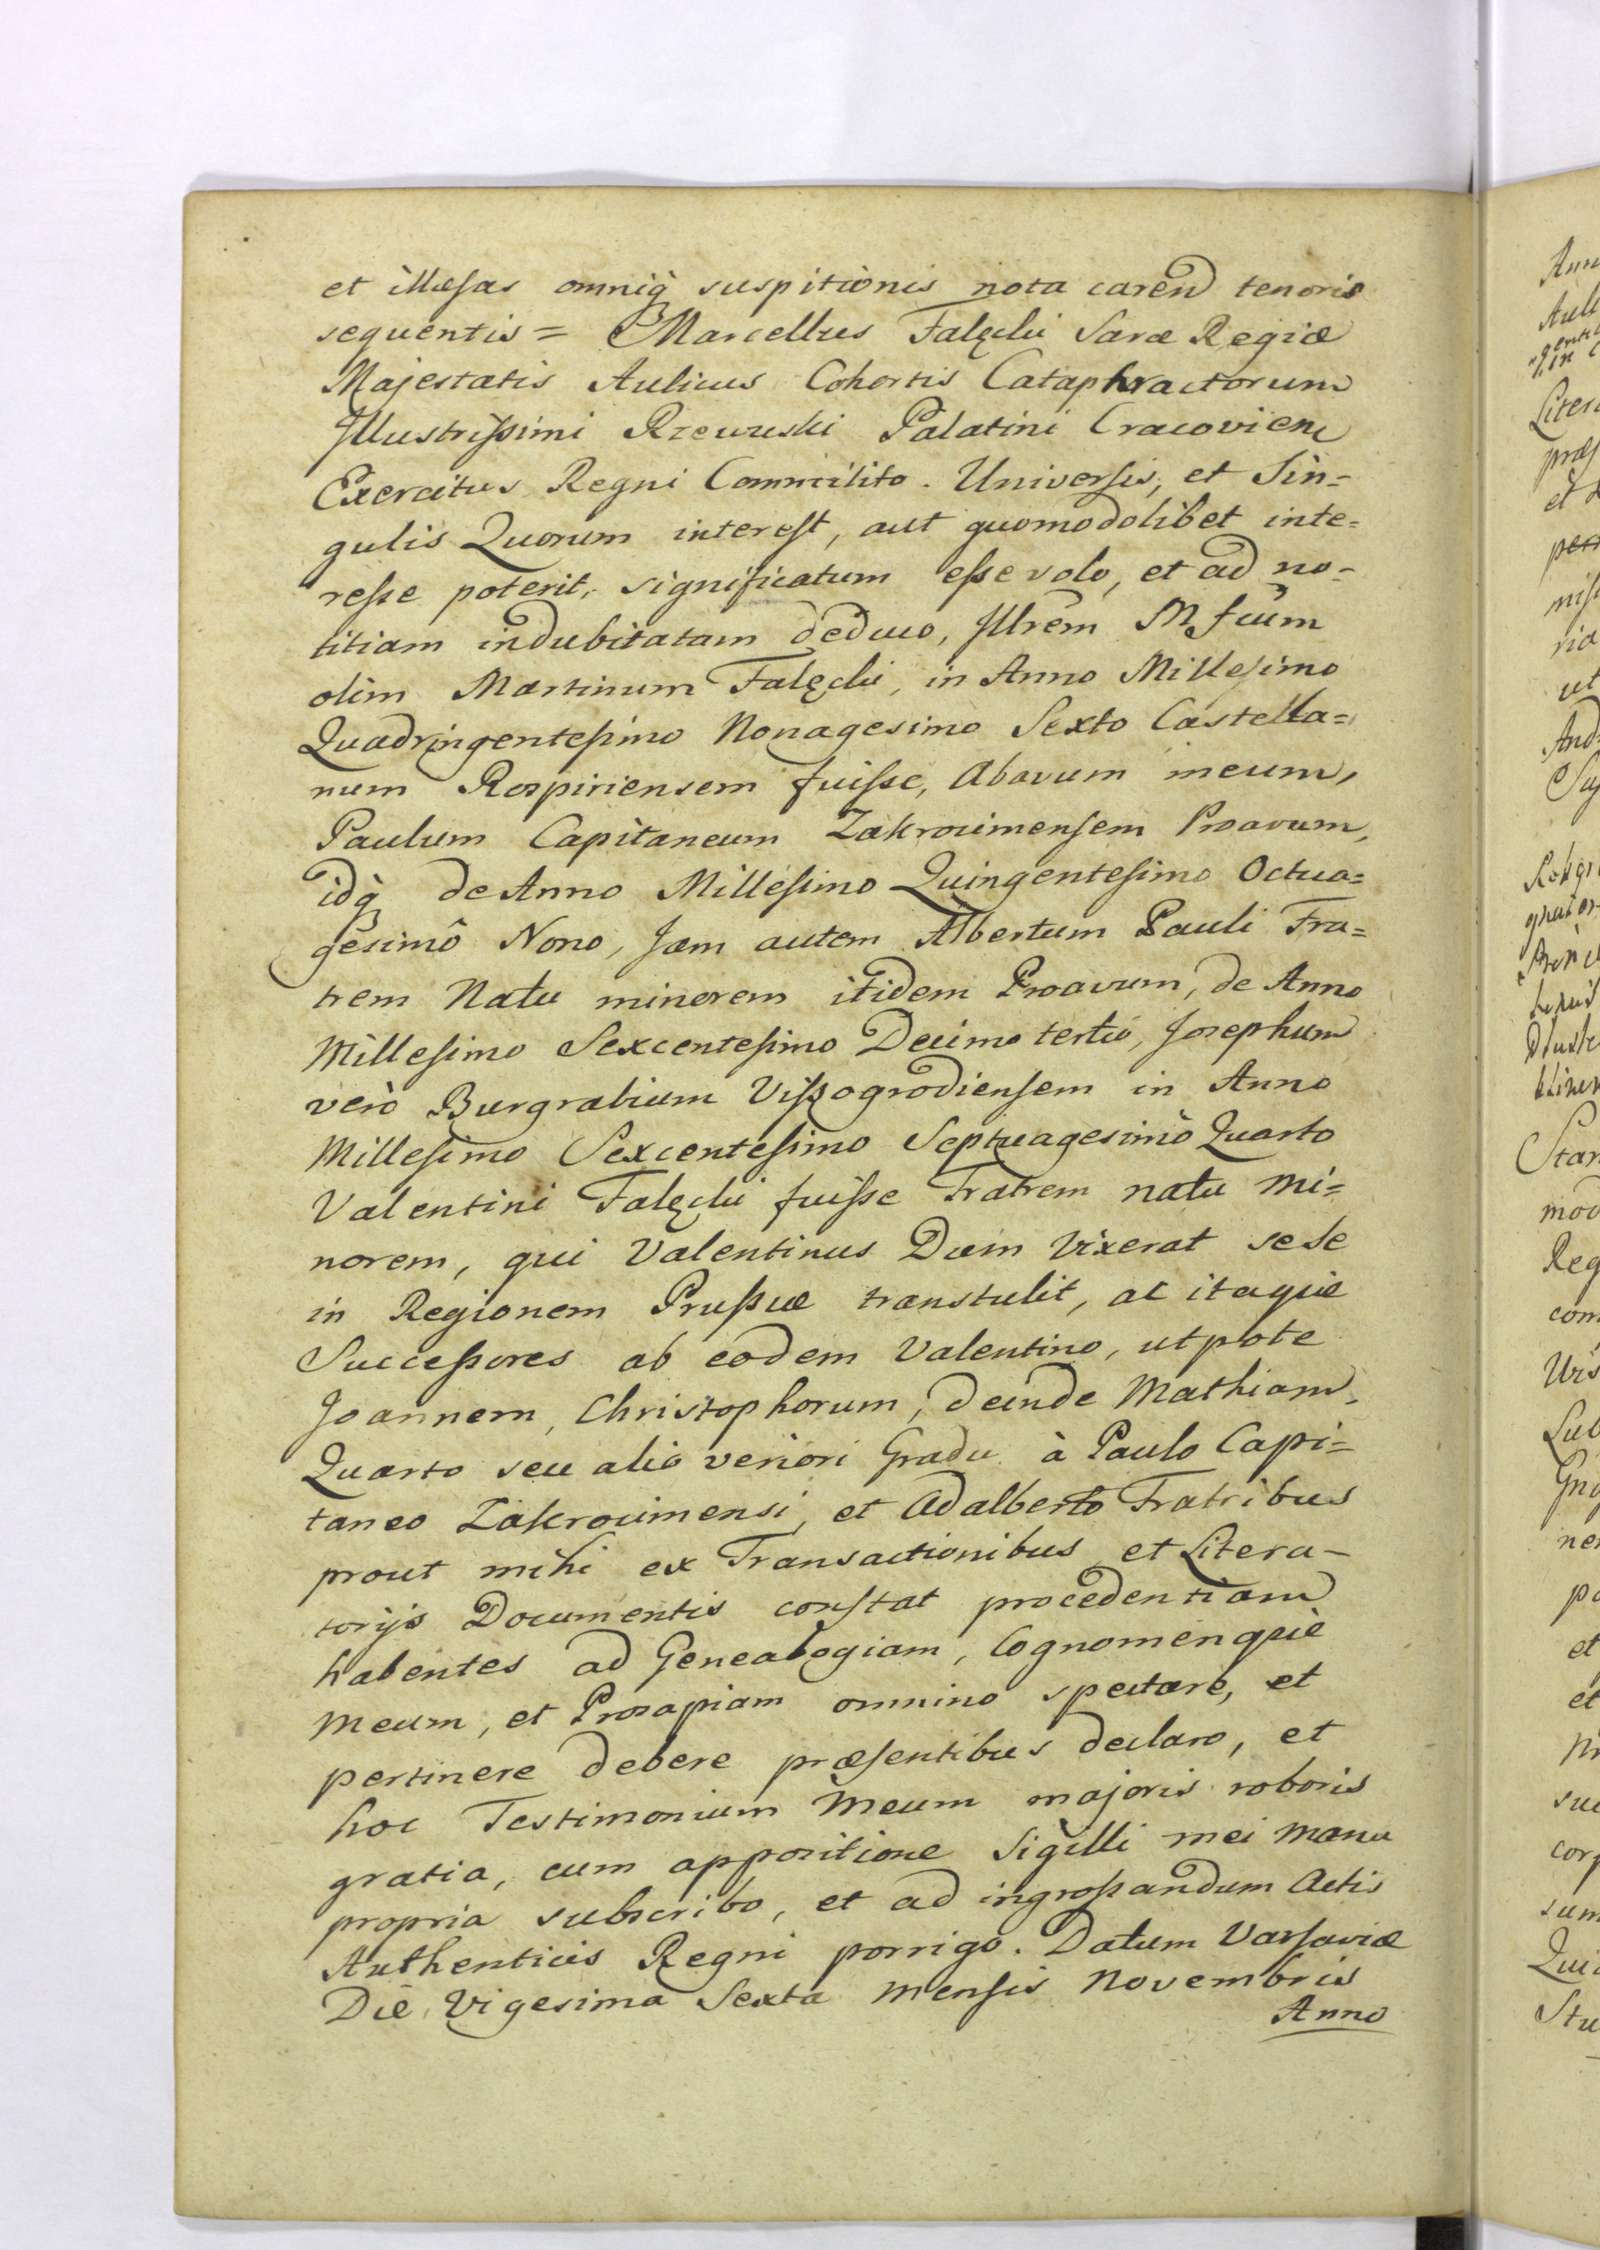 et illæsas omniq̀ suspitionis nota carend tenoris
sequentis = Marcellus Falęcki Saræ Regiæ
Majestatis Aulicus Cohortis Cataphractorum
Illustrissimi Rzewuski Palatini Cracovien
Exercitus Regni Commilito. Universis, et Sin=
gulis Quorum interest, aut quomodolibet inte=
resse poterit, significatum esse volo, et ad no=
titiam indubitatam deduco, Illrem Mfcum
olim Martinum Falęcki, in Anno Millesimo
Quadringentesimo Nonagesimo Sexto Castella=
num Rospiriensem fuisse, Abavum meum,
Paulum Capitaneum Zakrocimensem Proavum,
idq̀ de Anno Millesimo Quingentesimo Octua=
gesimô Nono, Jam autem Albertum Pauli Fra=
trem Natu minorem itidem Proavum, de Anno
Millesimo Sexcentesimo Decimo tertio, Josephum
verò Burgrabium Vissogrodiensem in Anno
Millesimo Sexcentesimo Septuagesimo Quarto
Valentini Falęcki fuisse Fratrem natu mi=
norem, qui Valentinus Dum Vixerat sese
in Regionem Prussiæ transtulit, ac itaquè
Successores ab eodem Valentino, utpote
Joannem, Christophorum, deinde Mathiam,
Quarto seu alio veriori Gradu à Paulo Capi=
taneo Zakrocimensi, et Adalberto Fratribus
prout mihi ex Transactionibus et Litera=
torijs Documentis constat procedentiam
habentes ad Genealogiam, Cognomenquè
Meum, et Prosapiam omnino spectare, et
pertinere debere præsentibus declaro, et
hoc Testimonium Meum majoris roboris
gratia, cum appositione Sigilli mei Manu
propria subscribo, et ad ingrossandum Actis
Authenticis Regni porrigo. Datum Varsaviæ
Die Vigesima Sexta Mensis Novembris
Anno